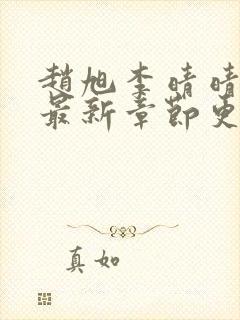 趙旭李晴晴
最新章節更
真如